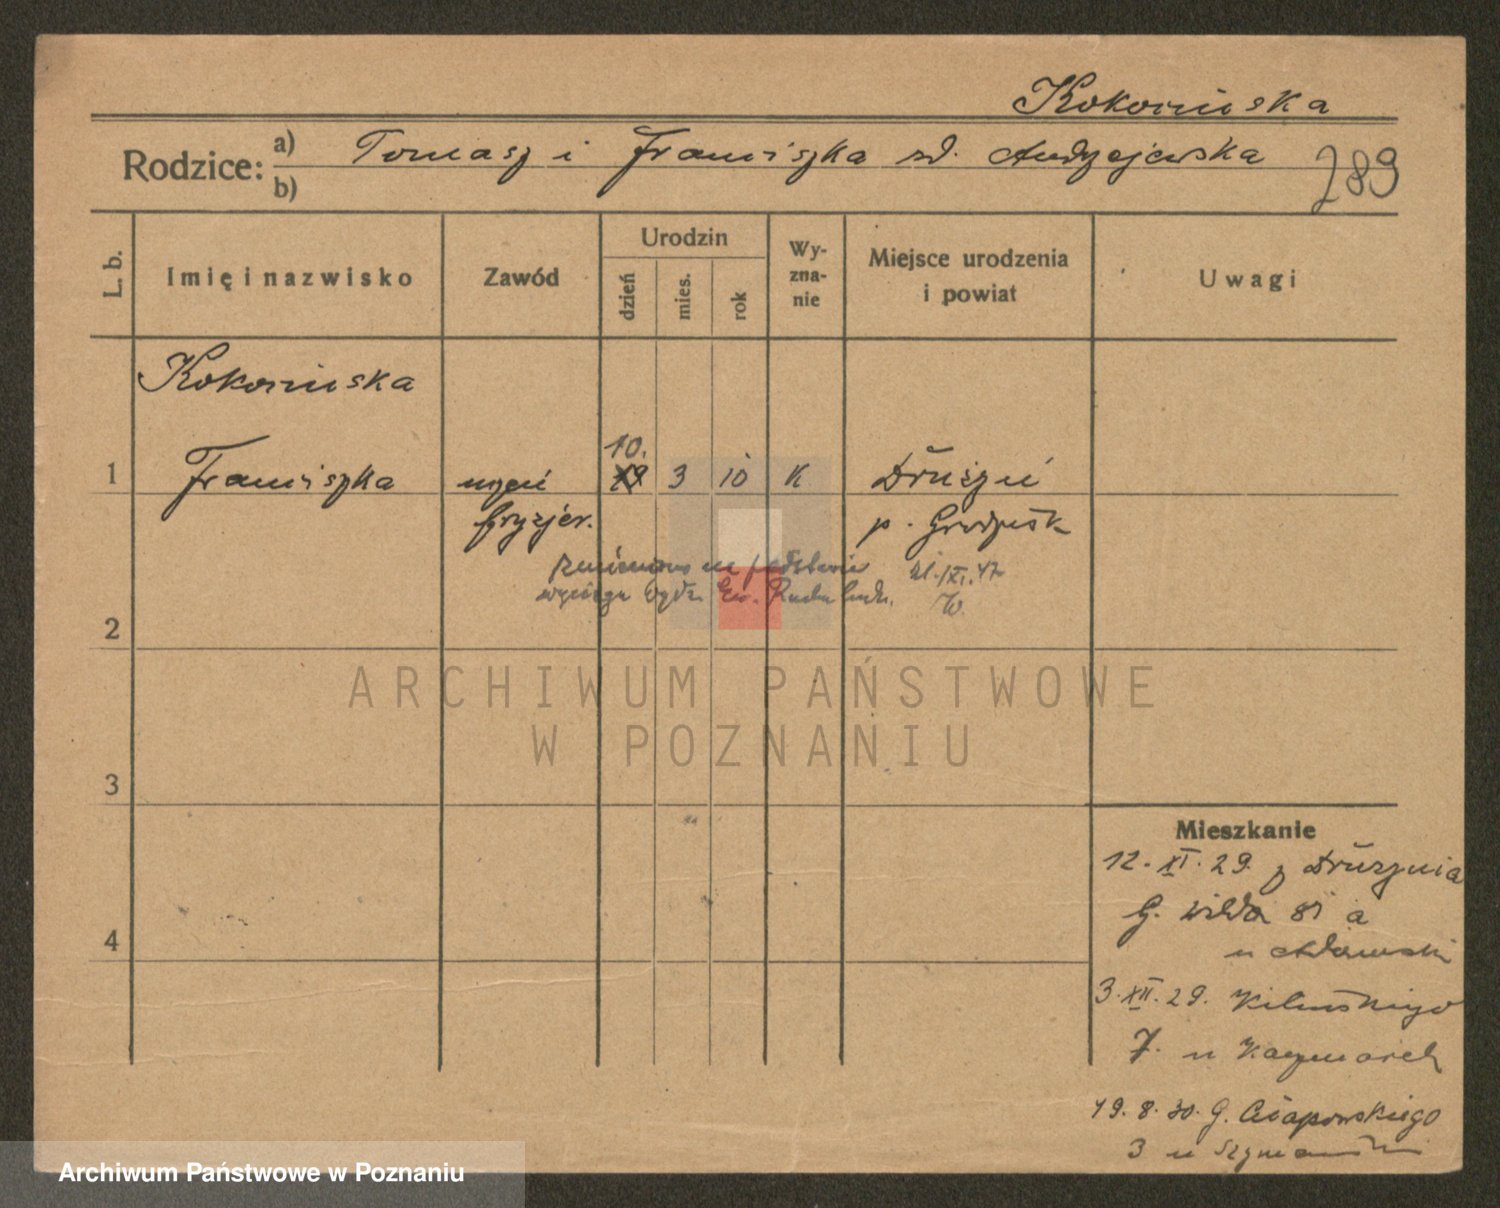 Kokocińska
Rodzice: a) Tomasz i Franciszka zd. Andrzejewska
b)
289
L. b.
Imię i nazwisko
Zawód
Urodzin
dzień
mies.
rok
Wy-
zna-
nie
Miejsce urodzenia
i powiat
Uwagi
Kokocińska
10.
1 Franciszka uczeń 19 3 10 K Drużyń
fryzjer. p. Grodzisk
zmieniono na podstawie 21.XI.47
wyciągu Ewid. Ruchu Ludn.
2
ARCHIWUM PAŃSTWOWE
W POZNANIU
3
4
Mieszkanie
12.XI.29. z Drużynia
G. Wilda 81 a
u Adamski
3.XII.29. Kilińskiego
7. u Kaczmarek
19.8.30. G. Czapowskiego
3 u Szymański
Archiwum Państwowe w Poznaniu